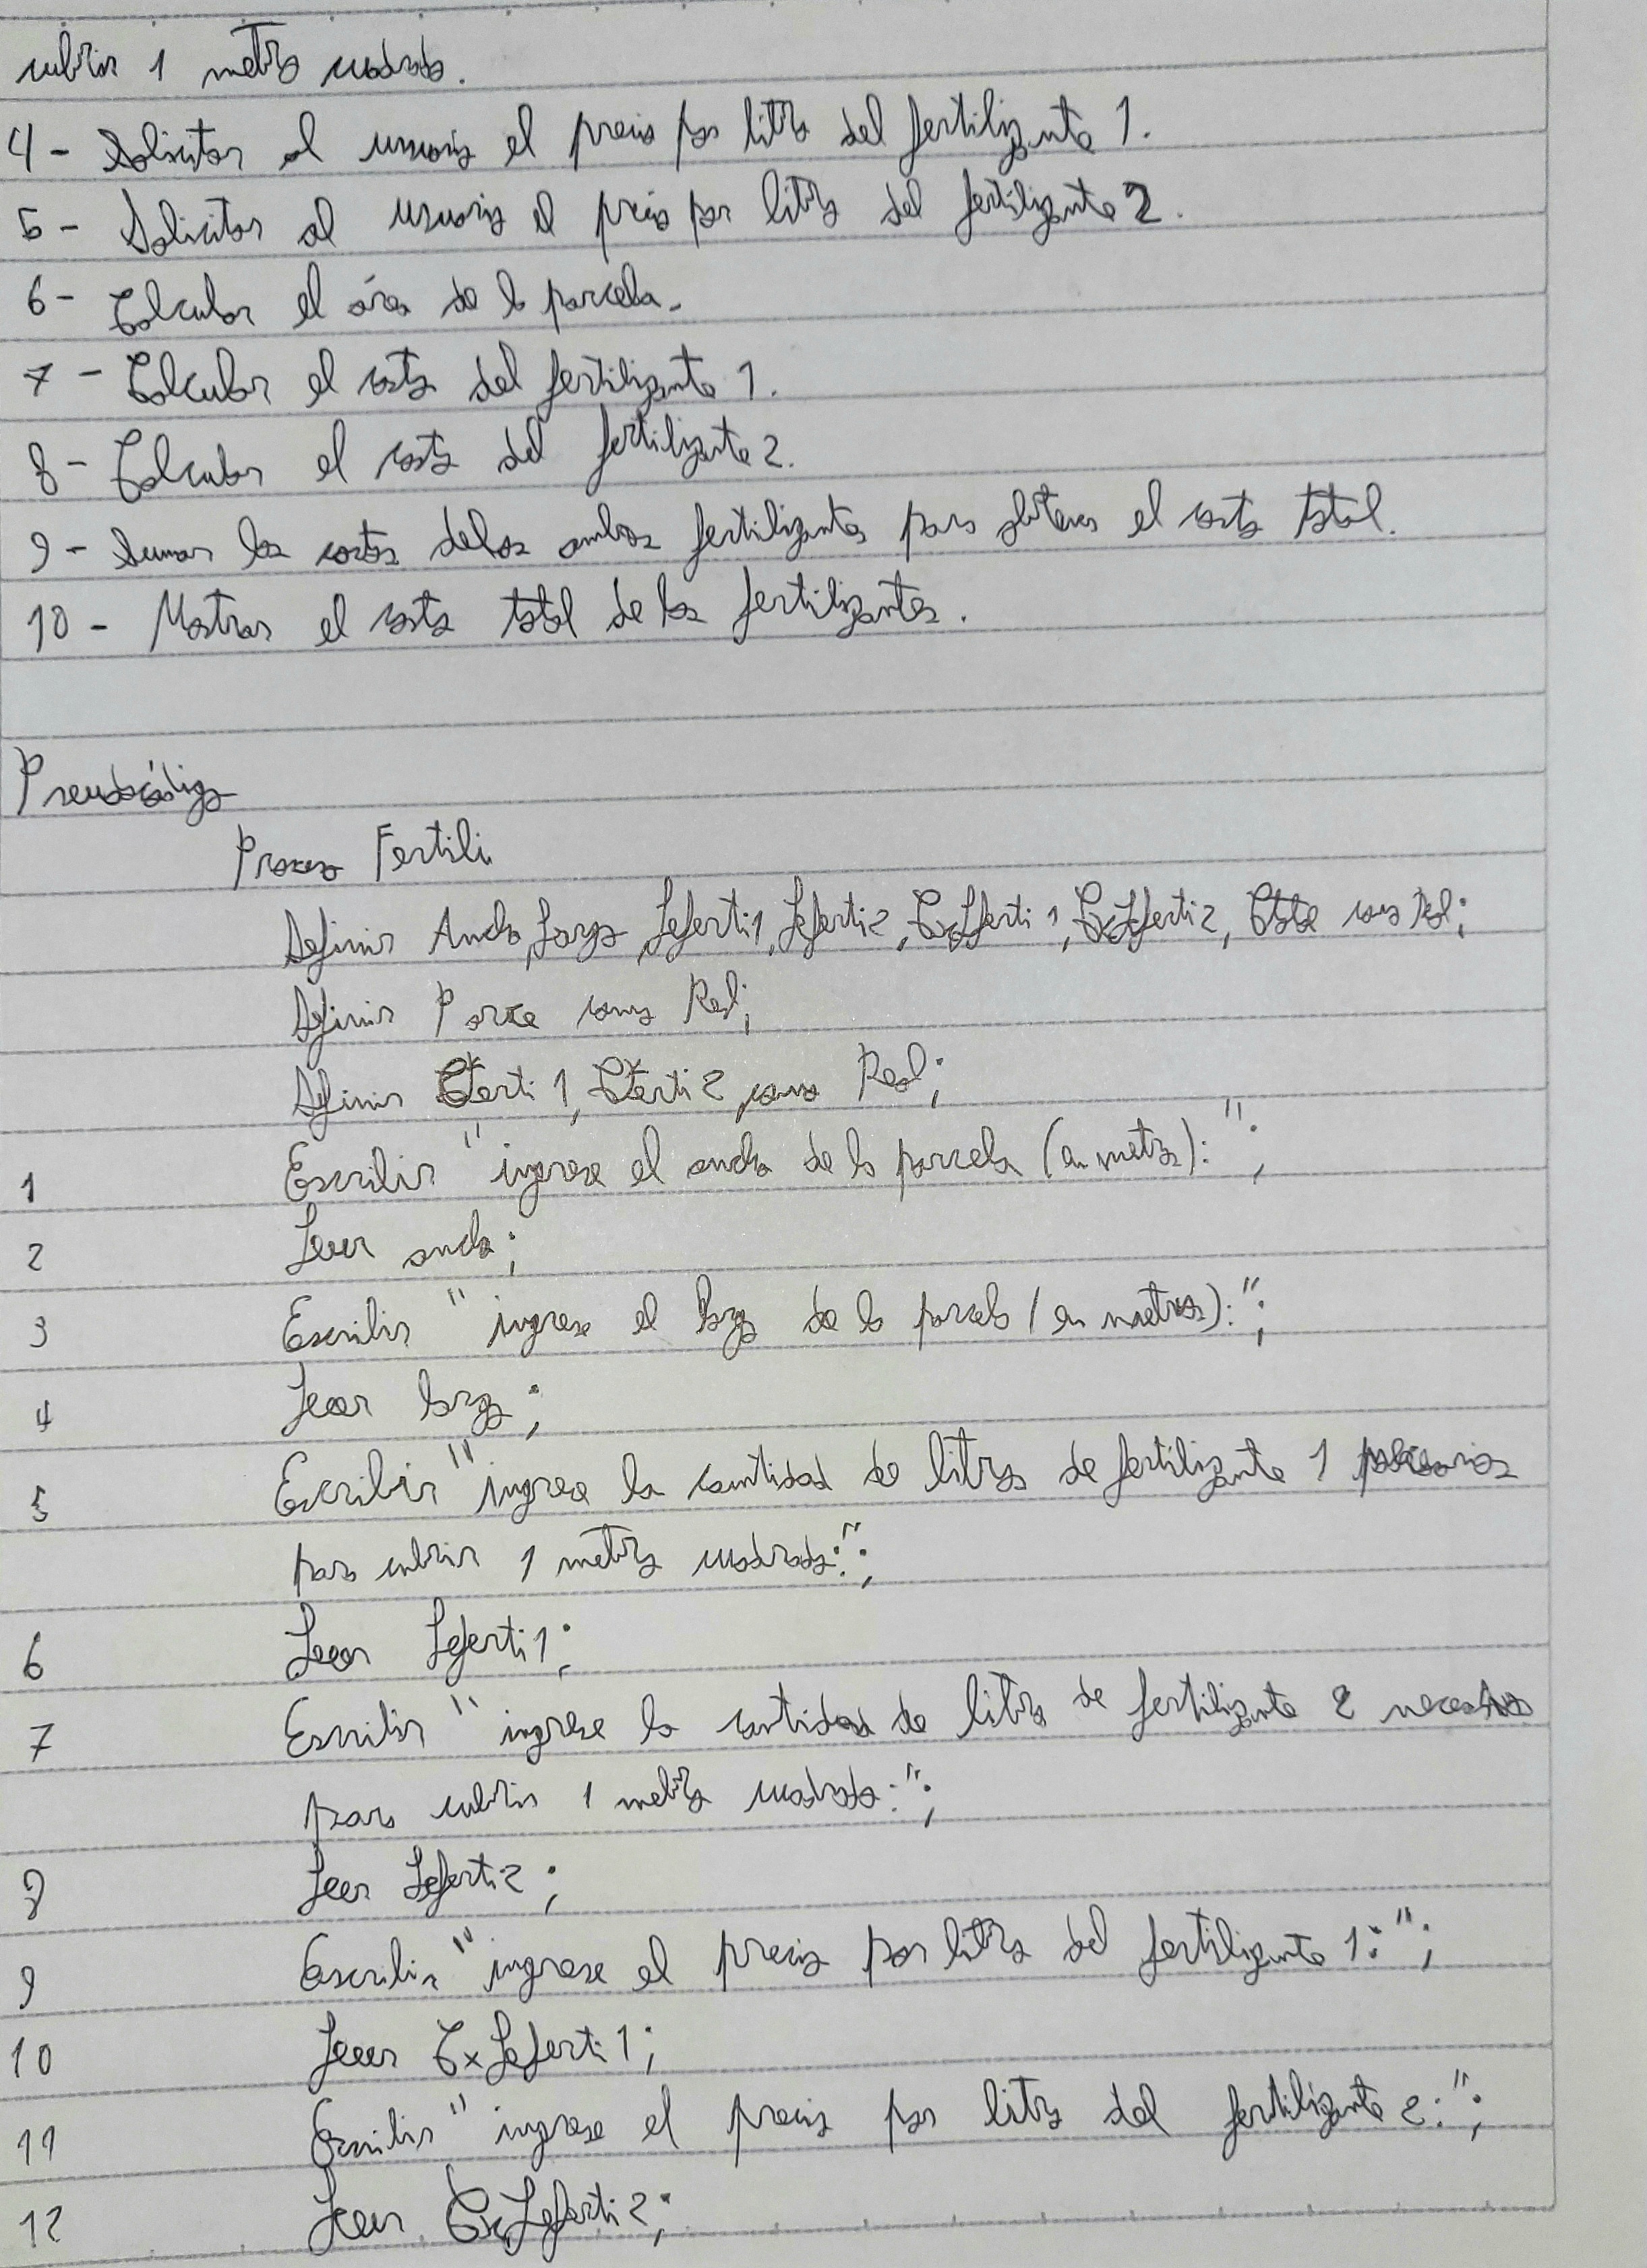 cubrir 1 metro cuadrado.
4 - Solicitar al usuario el precio por litro del fertilizante 1.
5 - Solicitar al usuario el precio por litro del fertilizante 2.
6 - Calcular el área de la parcela.
7 - Calcular el costo del fertilizante 1.
8 - Calcular el costo del fertilizante 2.
9 - Sumar los costos de los ambos fertilizantes para obtener el costo total.
10 - Mostrar el costo total de los fertilizantes.
Pseudocódigo
Proceso Fertili
Definir Ancho, Largo, Leferti1, Leferti2, CxLferti1, CxLferti2, Ctotal como Real;
Definir Parce como Real;
Definir Cferti1, Cferti2 como Real;
1 Escribir "ingrese el ancho de la parcela (en metros): ";
2 Leer ancho;
3 Escribir "ingrese el largo de la parcela (en metros): ";
4 Leer largo;
5 Escribir "ingrese la cantidad de litros de fertilizante 1 necesarios
para cubrir 1 metro cuadrado:";
6 Leer Leferti1;
7 Escribir "ingrese la cantidad de litros de fertilizante 2 necesarios
para cubrir 1 metro cuadrado:";
8 Leer Leferti2;
9 Escribir "ingrese el precio por litro del fertilizante 1:";
10 Leer CxLeferti1;
11 Escribir "ingrese el precio por litro del fertilizante 2:";
12 Leer CxLeferti2;